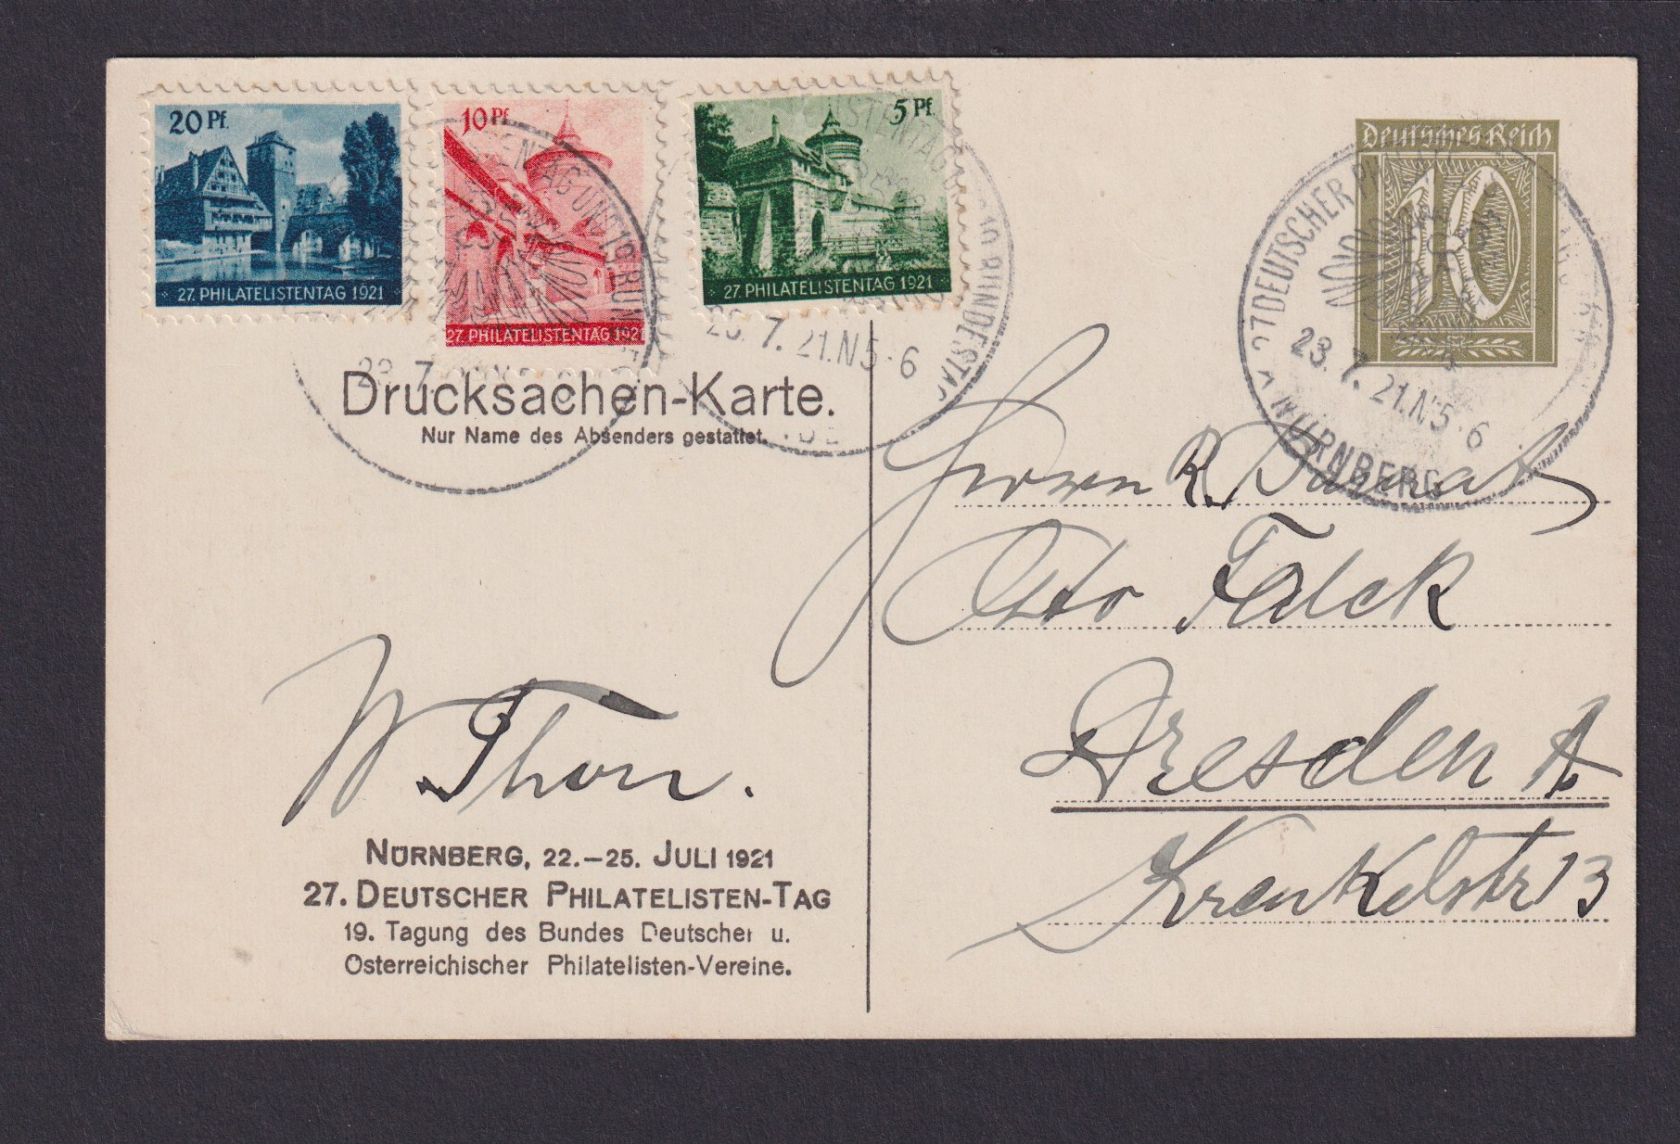 20 Pf.
27. PHILATELISTENTAG 1921
10 Pf.
27. PHILATELISTENTAG 1921
5 Pf.
27. PHILATELISTENTAG 1921
Deutsches Reich
10
27 DEUTSCHER
23. 7. 21. N 5-6
NÜRNBERG
23. 7. 21. N 5-6
Drucksachen-Karte.
Nur Name des Absenders gestattet.
Herrn R.
Otto Falck
Dresden A
Krenkelstr 13
W Thon.
NÜRNBERG, 22.–25. JULI 1921
27. DEUTSCHER PHILATELISTEN-TAG
19. Tagung des Bundes Deutscher u.
Österreichischer Philatelisten-Vereine.